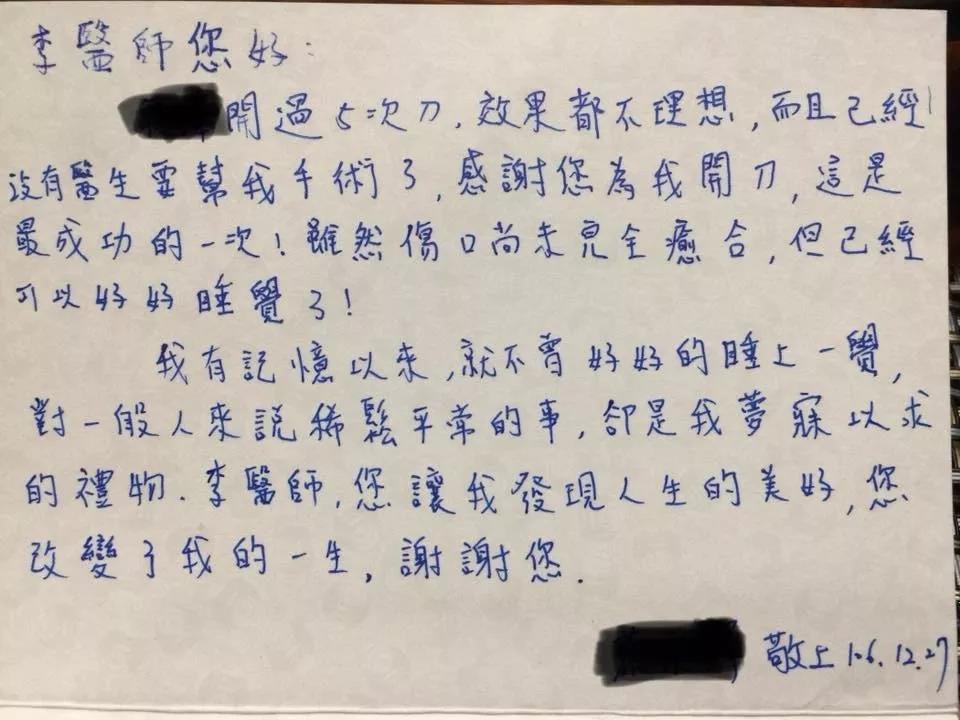 李醫師您好:
開過5次刀,效果都不理想,而且已經
沒有醫生要幫我手術了,感謝您為我開刀,這是
最成功的一次!雖然傷口尚未完全癒合,但已經
可以好好睡覺了!
我有記憶以來,就不曾好好的睡上一覺,
對一般人來說稀鬆平常的事,卻是我夢寐以求
的禮物.李醫師,您讓我發現人生的美好,您
改變了我的一生,謝謝您.
敬上106.12.27